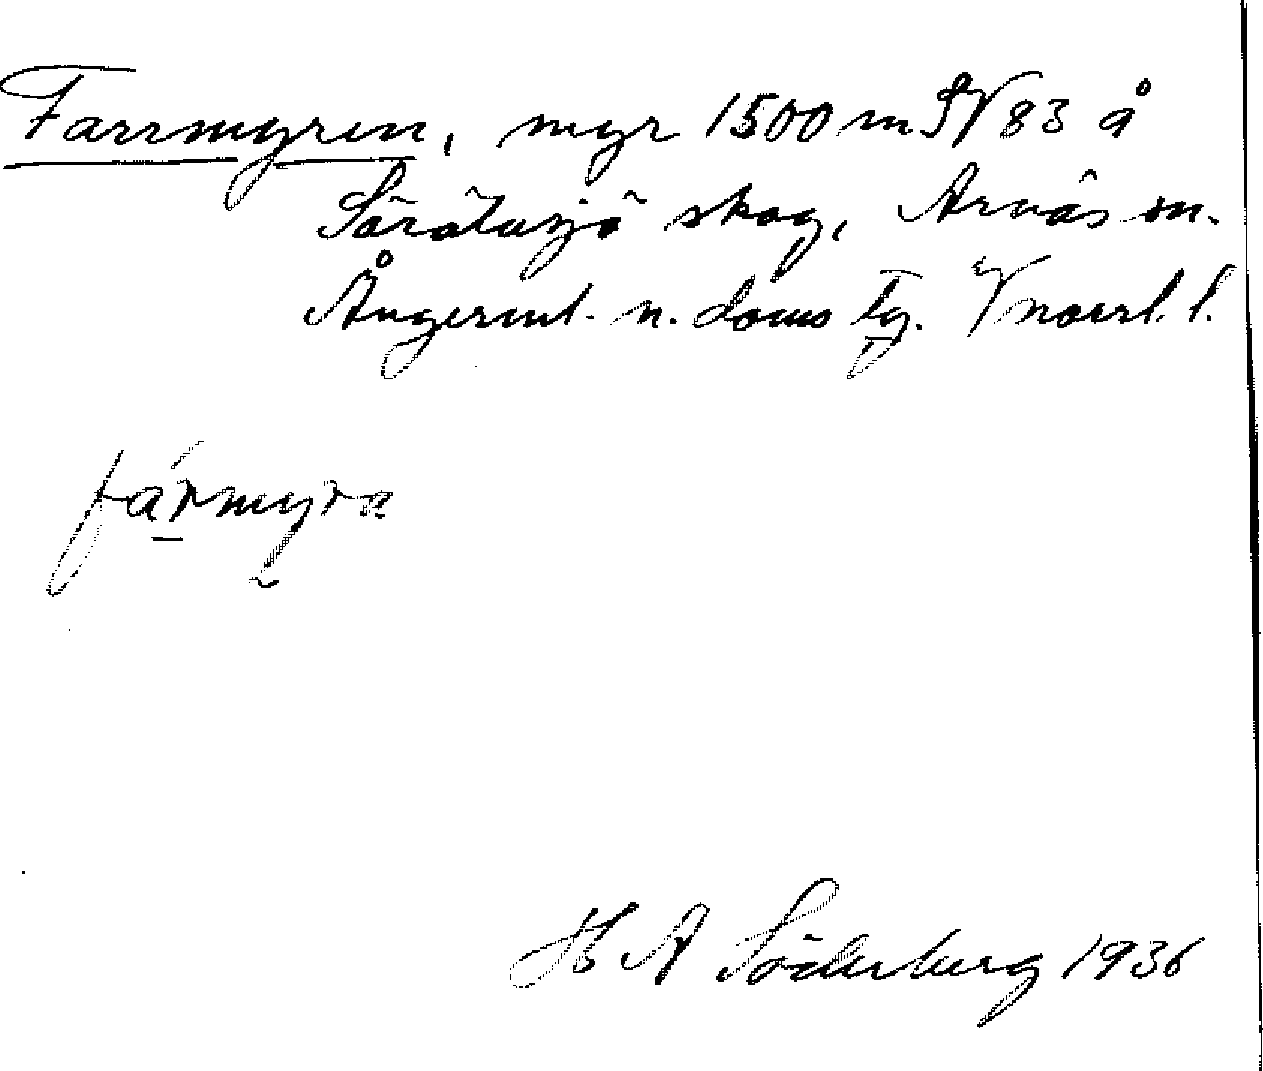 Farrmyren, myr 1500 m SV 83 å
skog, Arnäs sn.
Ångerml. n. doms tg. Vnorrl. l.
fármyra
H A Söderberg 1936